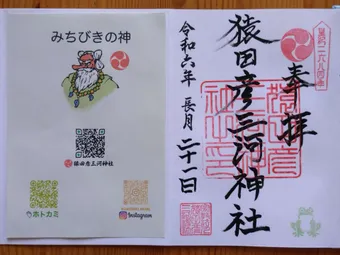 みちびきの神
猿田彦三河神社
ホトカミ
Instagram
奉拝
猿田彦三河神社
令和六年長月二十一日